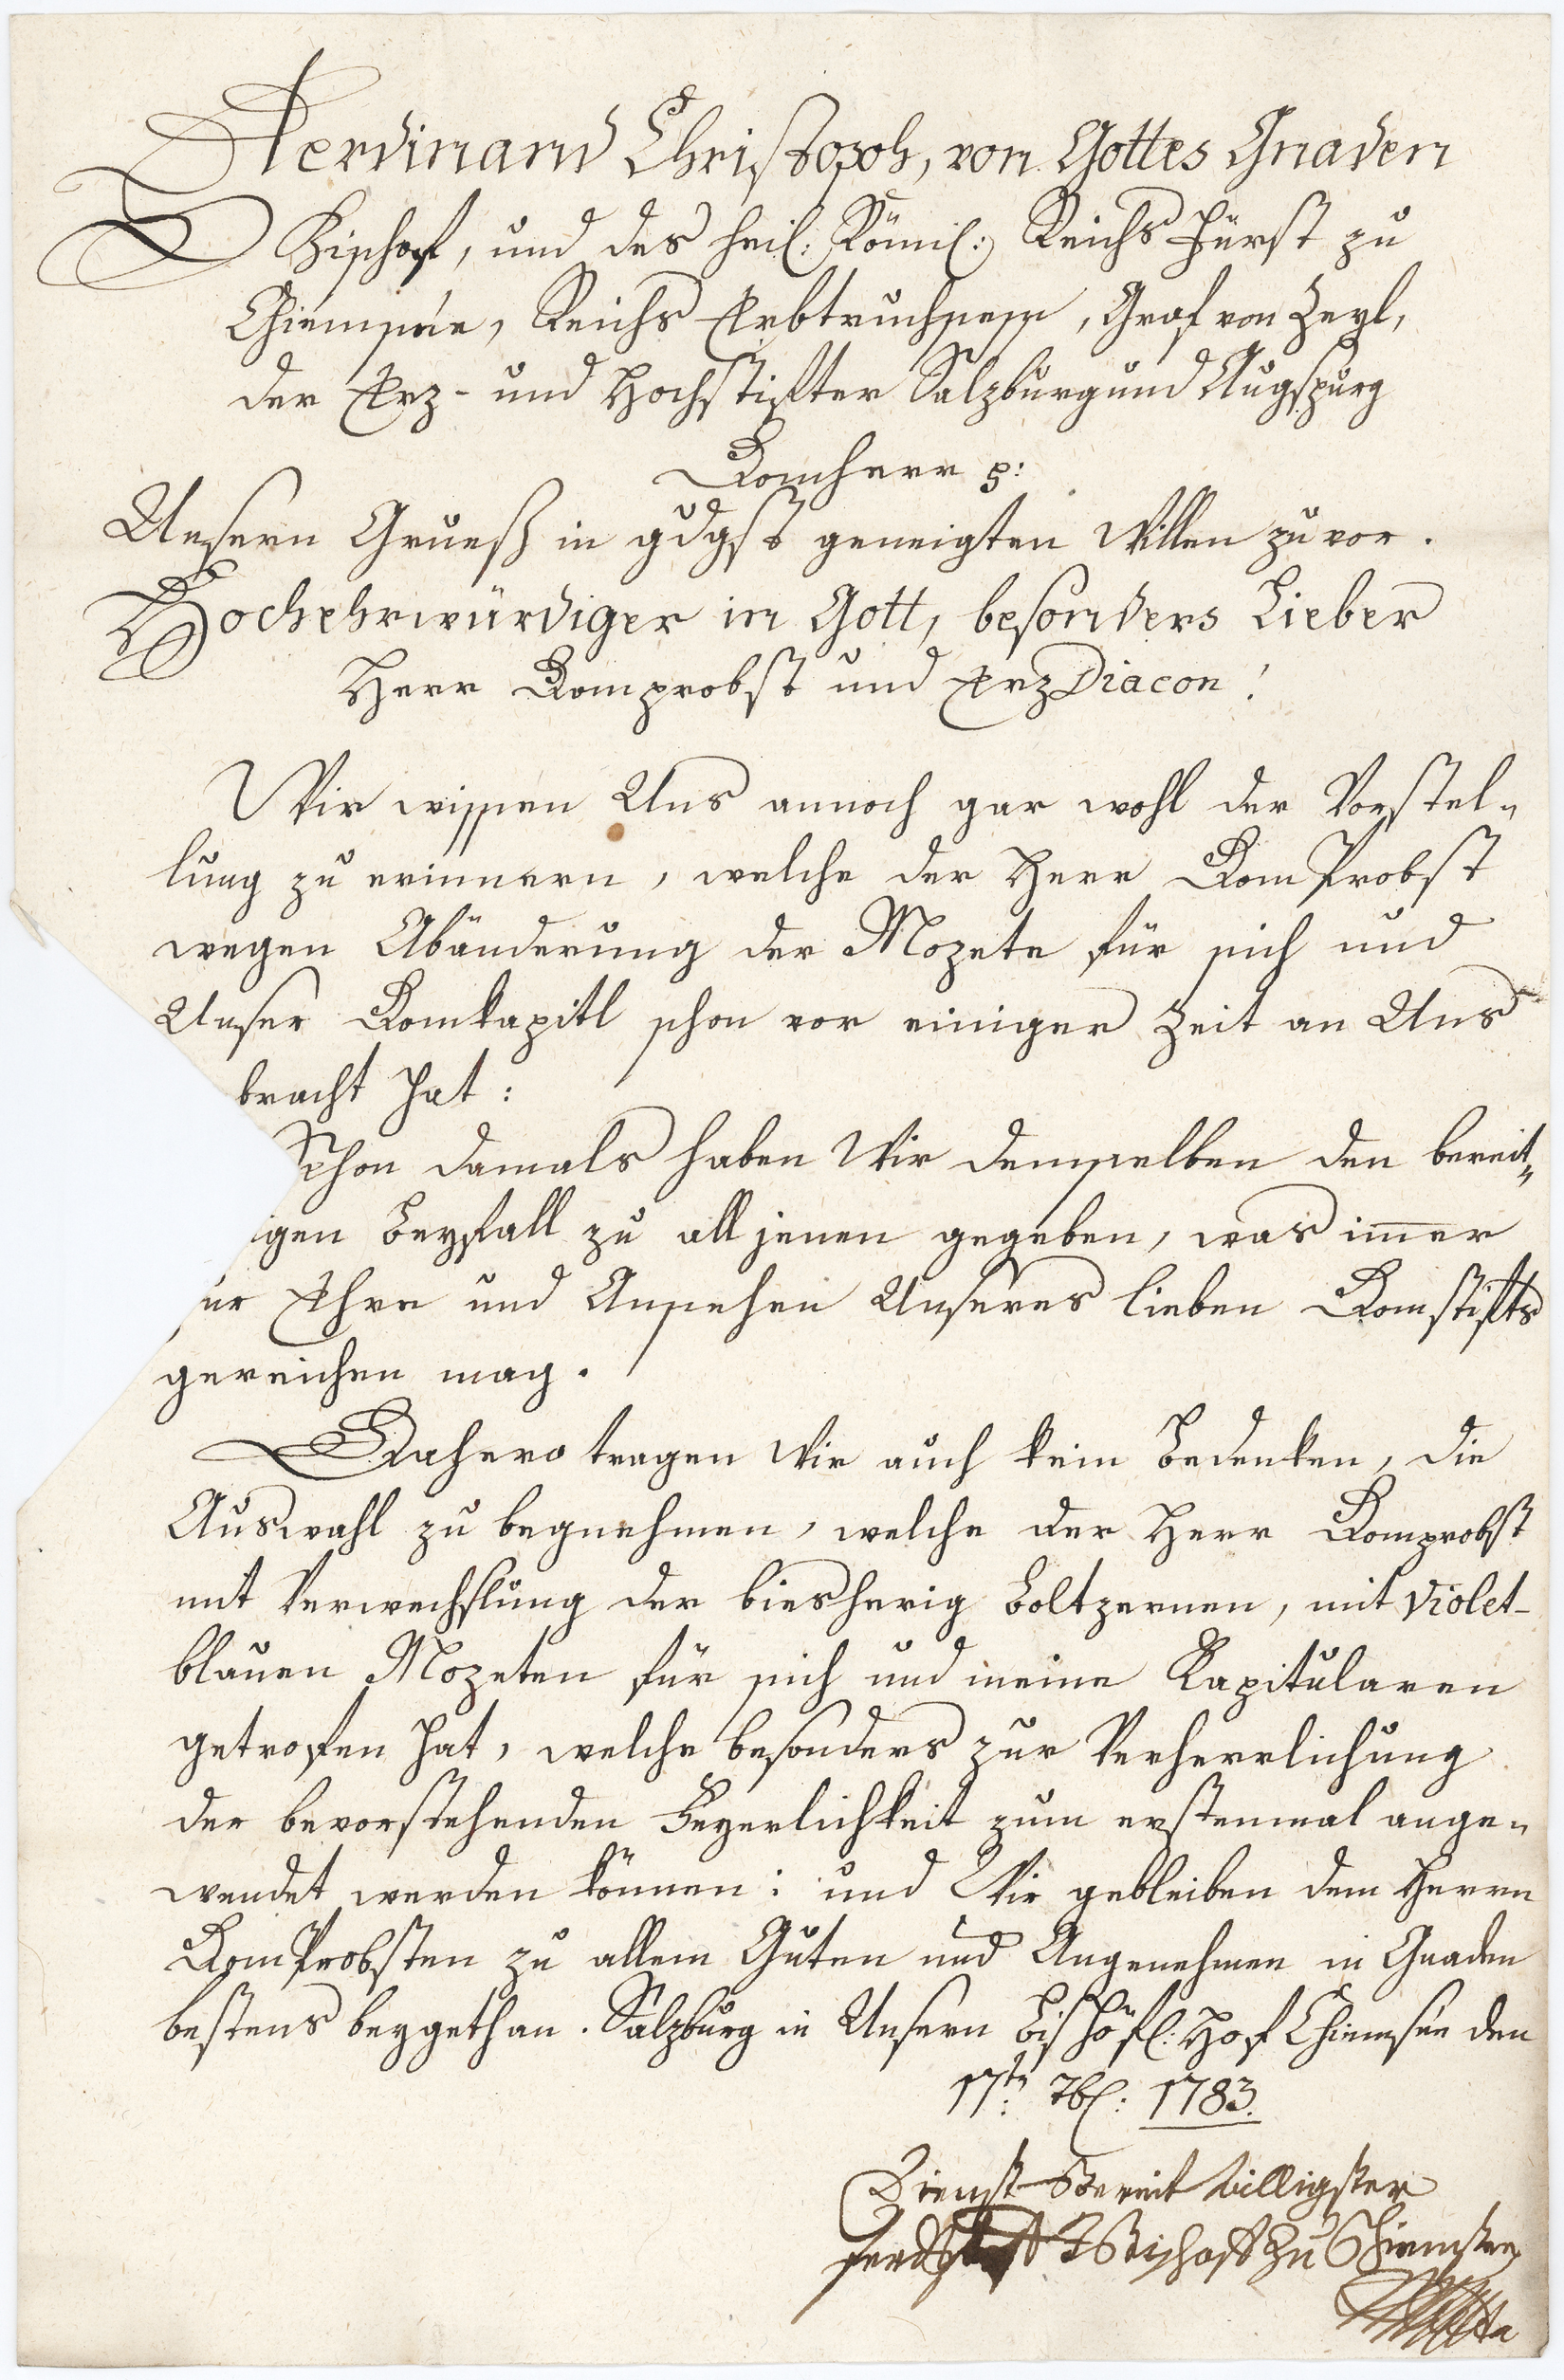 Ferdinand Christoph, von Gottes Gnaden
Bischof, und des heil: Römil: Reichs Fürst zu
Chiemsée, Reichs Erbtruchsess, Graf von Zeyl,
der Erz- und Hochstifter Salzburg und Augspurg
Domherr p:
Unsern Grueß in gudgst geneigten Willen zuvor.
Hochehrwürdiger in Gott, besonders Lieber
Herr Domprobst und ErzDiacon!
Wir wissen Uns annoch gar wohl der Vorstel„
lung zu erinnern, welche der Herr DomProbst
wegen Abänderung der Mozete für sich und
Unser Domkapitl schon vor einiger Zeit an Uns
bracht hat:
Schon damals haben Wir demselben den bereit„
igen Beyfall zu all jenen gegeben, was im̅er
ur Ehre und Ansehen Unseres lieben Domstifts
gereichen mag.
Dahero tragen Wir auch kein Bedenken, die
Auswahl zu begnehmen, welche der Herr Domprobst
mit Verwechslung der biesherig Boltzernen, mit Violet-
blauen Mozeten für sich und meine Kapitularen
getrofen hat, welche besonders zur Verherrlichung
der bevorstehenden Feyerlichkeit zum erstenmal ange„
wendet werden können: und Wir gebleiben dem Herrn
DomProbsten zu allem Guten und Angenehmen in Gnaden
bestens beygethan. Salzburg in Unsern Bishöfl: Hof Chiemsée den
17tn: 7b: 1783.
Dienst-Bereit willigster
Ferd Bischoff zu Chiemsee